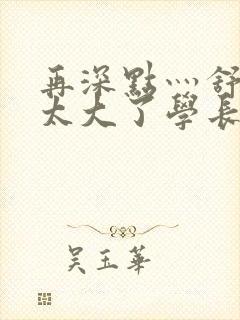 再深點灬舒
太大了學長
吳玉華